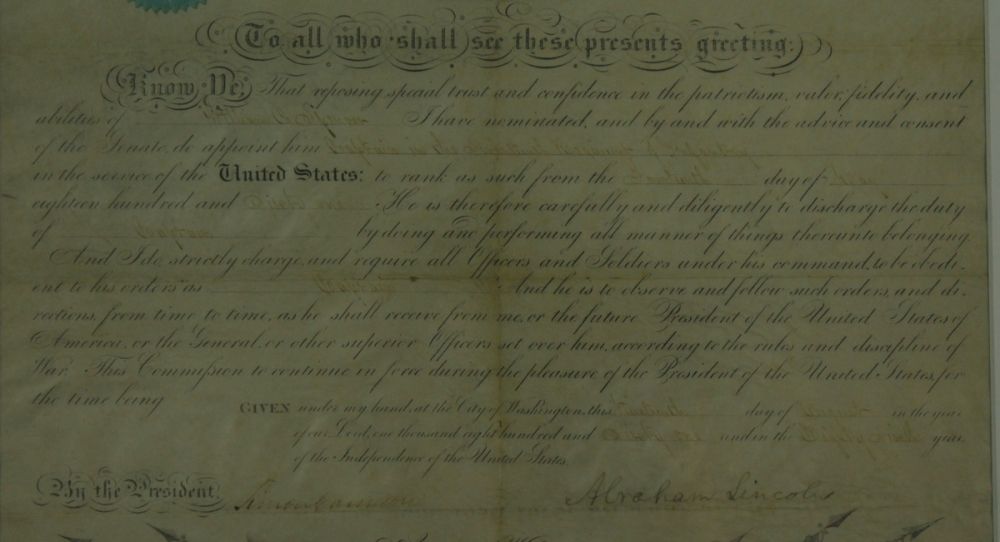 To all who shall see these presents greeting:
Know Ye, That reposing special trust and confidence in the patriotism, valor, fidelity, and
abilities of I have nominated, and by and with the advice and consent
of the Senate, do appoint him Captain in the Regiment of Infantry
in the service of the United States: to rank as such from the day of May
eighteen hundred and Sixty one. He is therefore carefully and diligently to discharge the duty
of Captain by doing and performing all manner of things thereunto belonging.
And I do strictly charge, and require all Officers and Soldiers under his command, to be obedi-
ent to his orders as Captain And he is to observe and follow such orders, and di-
rections, from time to time, as he shall receive from me, or the future President of the United States of
America, or the General, or other superior Officers set over him, according to the rules and discipline of
War. This Commission to continue in force during the pleasure of the President of the United States, for
the time being
GIVEN under my hand, at the City of Washington, this day of August in the year
of our Lord, one thousand eight hundred and Sixty one and in the Eighty Sixth year
of the Independence of the United States.
By the President, Abraham Lincoln
Simon Cameron